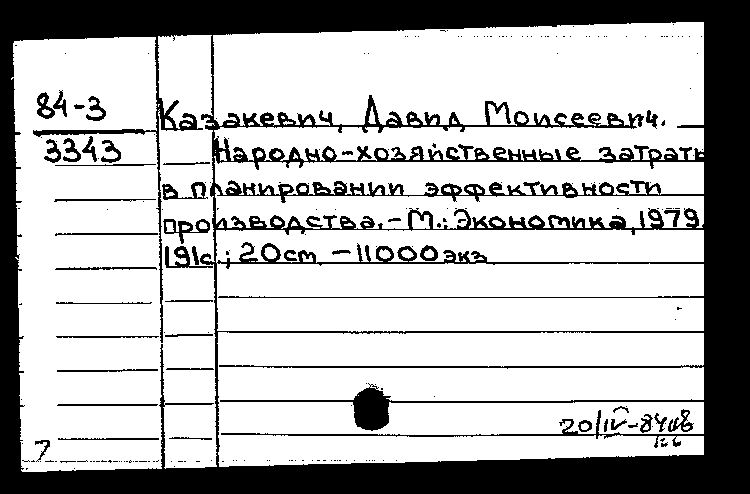 84-3
3343
Казакевич, Давид Моисеевич.
Народно-хозяйственные затраты
в планировании эффективности
производства. - М.: Экономика, 1979.
191с.; 20cm - 11000 экз
20/IV-84
7